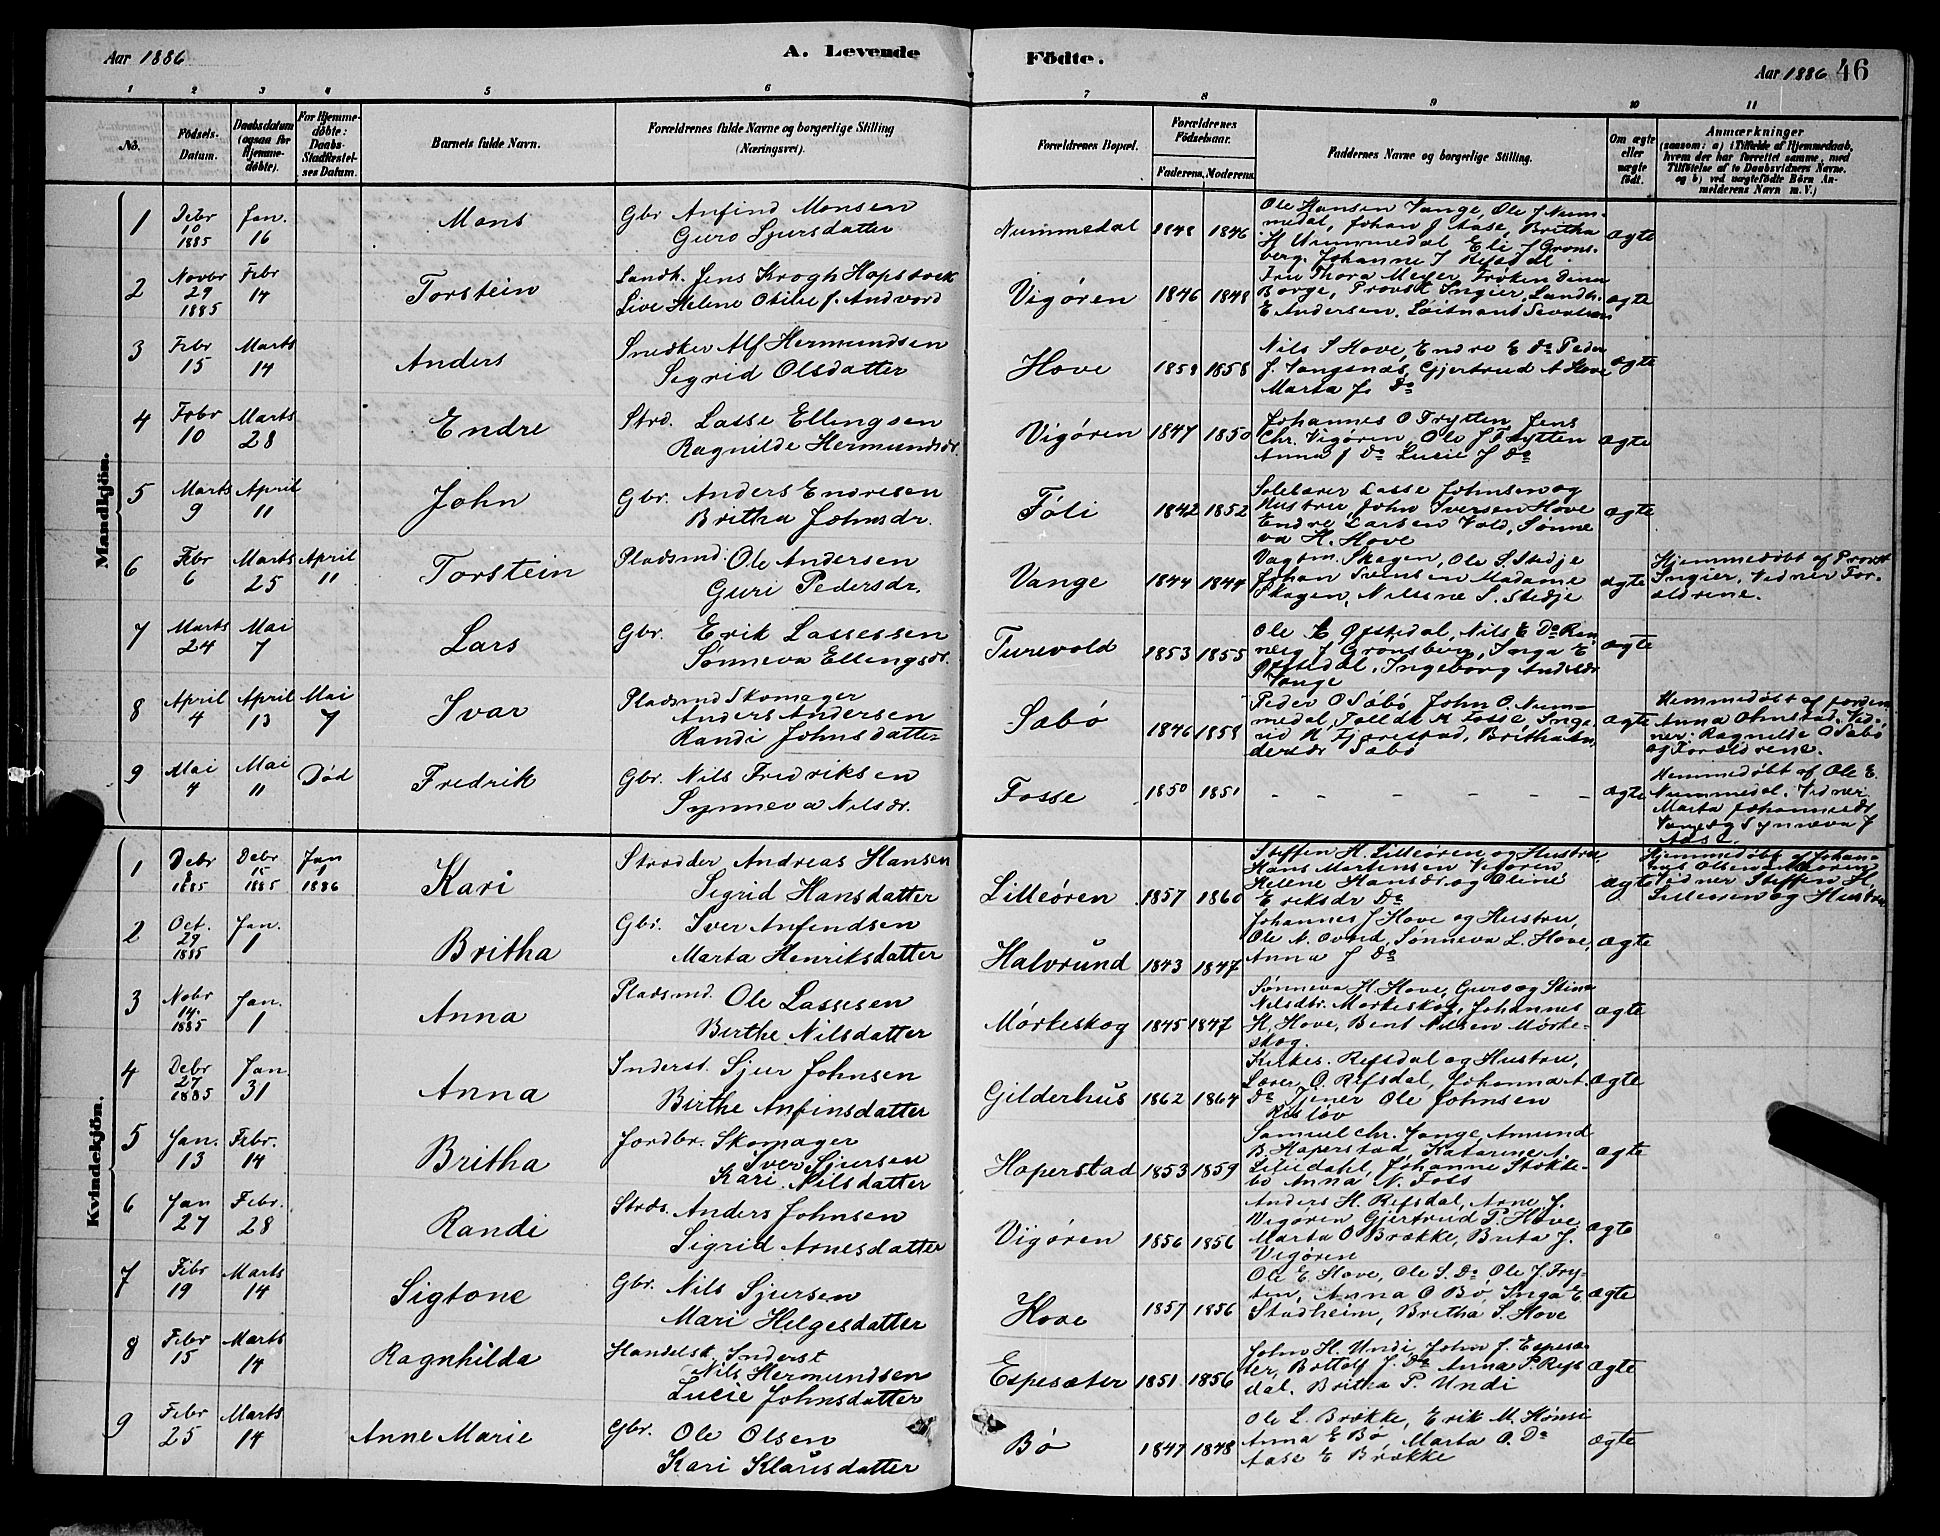 Aar 1886
A. Levende
Födte.
Aar 1886
46
1 2 3 4 5 6 7 8 9 10 11
No.
Födsels-
Datum.
Daabsdatum
(ogsaa for
Hjemme-
døbte).
For Hjemme-
døbte:
Daabs-
Stadfæstel-
ses Datum.
Barnets fulde Navn.
Forældrenes fulde Navne og borgerlige Stilling
(Næringsvei).
Forældrenes Bopæl.
Forældrenes
Födselsaar.
Faderens. Moderens.
Faddernes Navne og borgerlige Stilling.
Om ægte
eller
uægte
født.
Anmærkninger
(saasom: a) i Tilfælde af Hjemmedaab,
hvem der har forrettet samme, med
Tilföielse af to Daabsvidners Navne.
og b) ved uægtefödte Börn An-
melderens Navn m. V.)
Mandkjön.
1
Debr
10
1885
Jan.
16
Mons
Gbr Anfind Monsen
Guro Sjursdatter
Nummedal
1848 1846
Ole Hansen Vange, Ole J Num-
medal, Johan J Aase, Britha
H Nummedal Eli J Grons-
berg. Johanne J Refsdal
ægte
2
Novbr
29
1885
Febr
14
Torstein
Landh. Jens Krogh Hopstock
Live Helene Otilie f. Andvord
Vigøren
1846 1848
Fru Thora Meyer Frøken Dina
Borge, Provst Ingier, Landh.
E Andersen, Løitnant
ægte
3
Febr
15
Marts
14
Anders
Snedker Alf Hermundsen
Sigrid Olsdatter
Hove
1859 1858
Nils S Hove, Endre E Do Peder
J. Vangsnæs, Gjertrud A Hove
Marta J. Do
ægte
4
Febr
10
Marts
28
Endre
Strd. Lasse Ellingsen
Ragnilde Hermundsdr.
Vigøren
1847 1850
Johannes O Frytten Jens
Chr. Vigøren, Ole J Frytten
Anna J Do Lucie J Do
ægte
5
Marts
9
April
11
John
Gbr. Anders Endresen
Britha Johnsdr.
Føli
1842 1852
Lasse Johnsen og
Hustru, John Iversen Hove
Endre Larsen Vold, Sønne
va H. Hove
ægte
6
Febr
6
Marts
25
April
11
Torstein
Pladsmd. Ole Andersen
Guri Pedersdr.
Vange
1844 1844
Vagtm. Skagen, Ole S. Stedje
Johan Svensen Madame
Skagen, Nilsine S. Stedje
ægte
Hjemmedøbt af Provst
Ingier, Vidner For-
ældrene.
7
Marts
24
Mai
7
Lars
Gbr. Erik Lassessen
Sønneva Ellingsdr.
Turevold
1853 1855
Ole E Ofstedal, Nils E Do Ran
neig J Grønsberg, Inga E
Ofstedal, Ingeborg Andersdr
Vange
ægte
8
April
4
April
13
Mai
7
Ivar
Pladsmd Skomager
Anders Andersen
Randi Johnsdatter
Sabø
1846 1858
Peder O Sabø, John O. Num-
medal, Tolleif R Fosse, Inge
rid N Fjærestad, Britha An
dersdr Sabø
ægte
Hemmedøbt af Jordem
Anna Ohnstad. Vid-
ner: Ragnilde O Sabø
og Forældrene.
9
Mai
4
Mai
11
Død
Fredrik
Gbr. Nils Fredriksen
Synneva Nilsdr.
Fosse
1850 1851
- - - - - -
ægte
Hemmedøbt af Ole E.
Nummedal. Vidner
Marta Johannesdr
Vange og Synneva J
Aase.
Kvindekjön.
1
Debr
8
1885
Debr
15
1885
Jan
1
1886
Kari
Strødder Andreas Hansen
Sigrid Hansdatter
Lilleøren
1857 1860
Steffen H. Lilleøren og Hustru,
Hans Martinsen Vigøren
Helene Hansdr og Oline
Eriksdr Do
ægte
Hjemmedøbt af Johan-
nes Olsen
Vidner Steffen H.
Lilleøren og Hustru
2
Oct.
29
1885
Jan.
1
Britha
Gbr. Iver Anfendsen
Marta Henriksdatter
Halvrund
1843 1847
Johannes J Hove og Hustru,
Ole A. Ovrid, Sønneva L. Hove,
Anna J Do
ægte
3
Nobr
14
1885
Jan.
1
Anna
Pladsmd. Ole Lassesen
Birthe Nilsdatter
Mørkeskog
1845 1847
Sønneva H. Hove, Guro og Stina
Nilsdtr. Mørkeskog, Johannes
H. Hove, Bent Nilsen Mørke-
skog.
ægte
4
Debr
27
1885
Jan
31
Anna
Inderst. Sjur Johnsen
Birthe Anfinsdatter
Gilderhus
1862 1864
Kirkes. Refsdal og Hustru,
Lærer O. Refsdal, Johanna A.
Do Tjener Ole Johnsen
Risløv
ægte
5
Jan.
13
Febr.
14
Britha
Jordbr. Skomager
Iver Sjursen
Kari Nilsdatter
Hoperstad
1853 1859
Samuel Chr. Vange, Amund
B. Hoperstad, Katarine A.
Liledahl, Johanne Stokke-
bø Anna N. Foss
ægte
6
Jan
27
Febr.
28
Randi
Strds. Anders Johnsen
Sigrid Arnesdatter
Vigøren
1856 1856
Anders H. Refsdal, Arne J.
Vigøren, Gjertrud P. Hove
Marta O Brække, Brita J.
Vigøren
ægte
7
Febr
19
Marts
14
Sigtone
Gbr. Nils Sjursen
Mari Helgesdatter
Hove
1857 1856
Ole E. Hove, Ole S. Do Ole J. Fry-
ten, Anna O Bø, Inga E
Stadheim, Britha S. Hove
ægte
8
Febr
15
Marts
14
Ragnhilda
Handelsk. Inderst
Nils Hermundsen
Lucie Johnsdatter
Espesæter
1851 1856
John H. Undi, John J. Espesæ-
ter, Bottolf J. Do Anna P. Refs
dal. Britha P. Undi
ægte
9
Febr
25
Marts
14
Anne Marie
Gbr. Ole Olsen
Kari Klausdatter
Bø
1847 1848
Ole L. Brække, Erik M. Hønsi
Anna E Bø, Marta O. Do
Aase E Brække
ægte